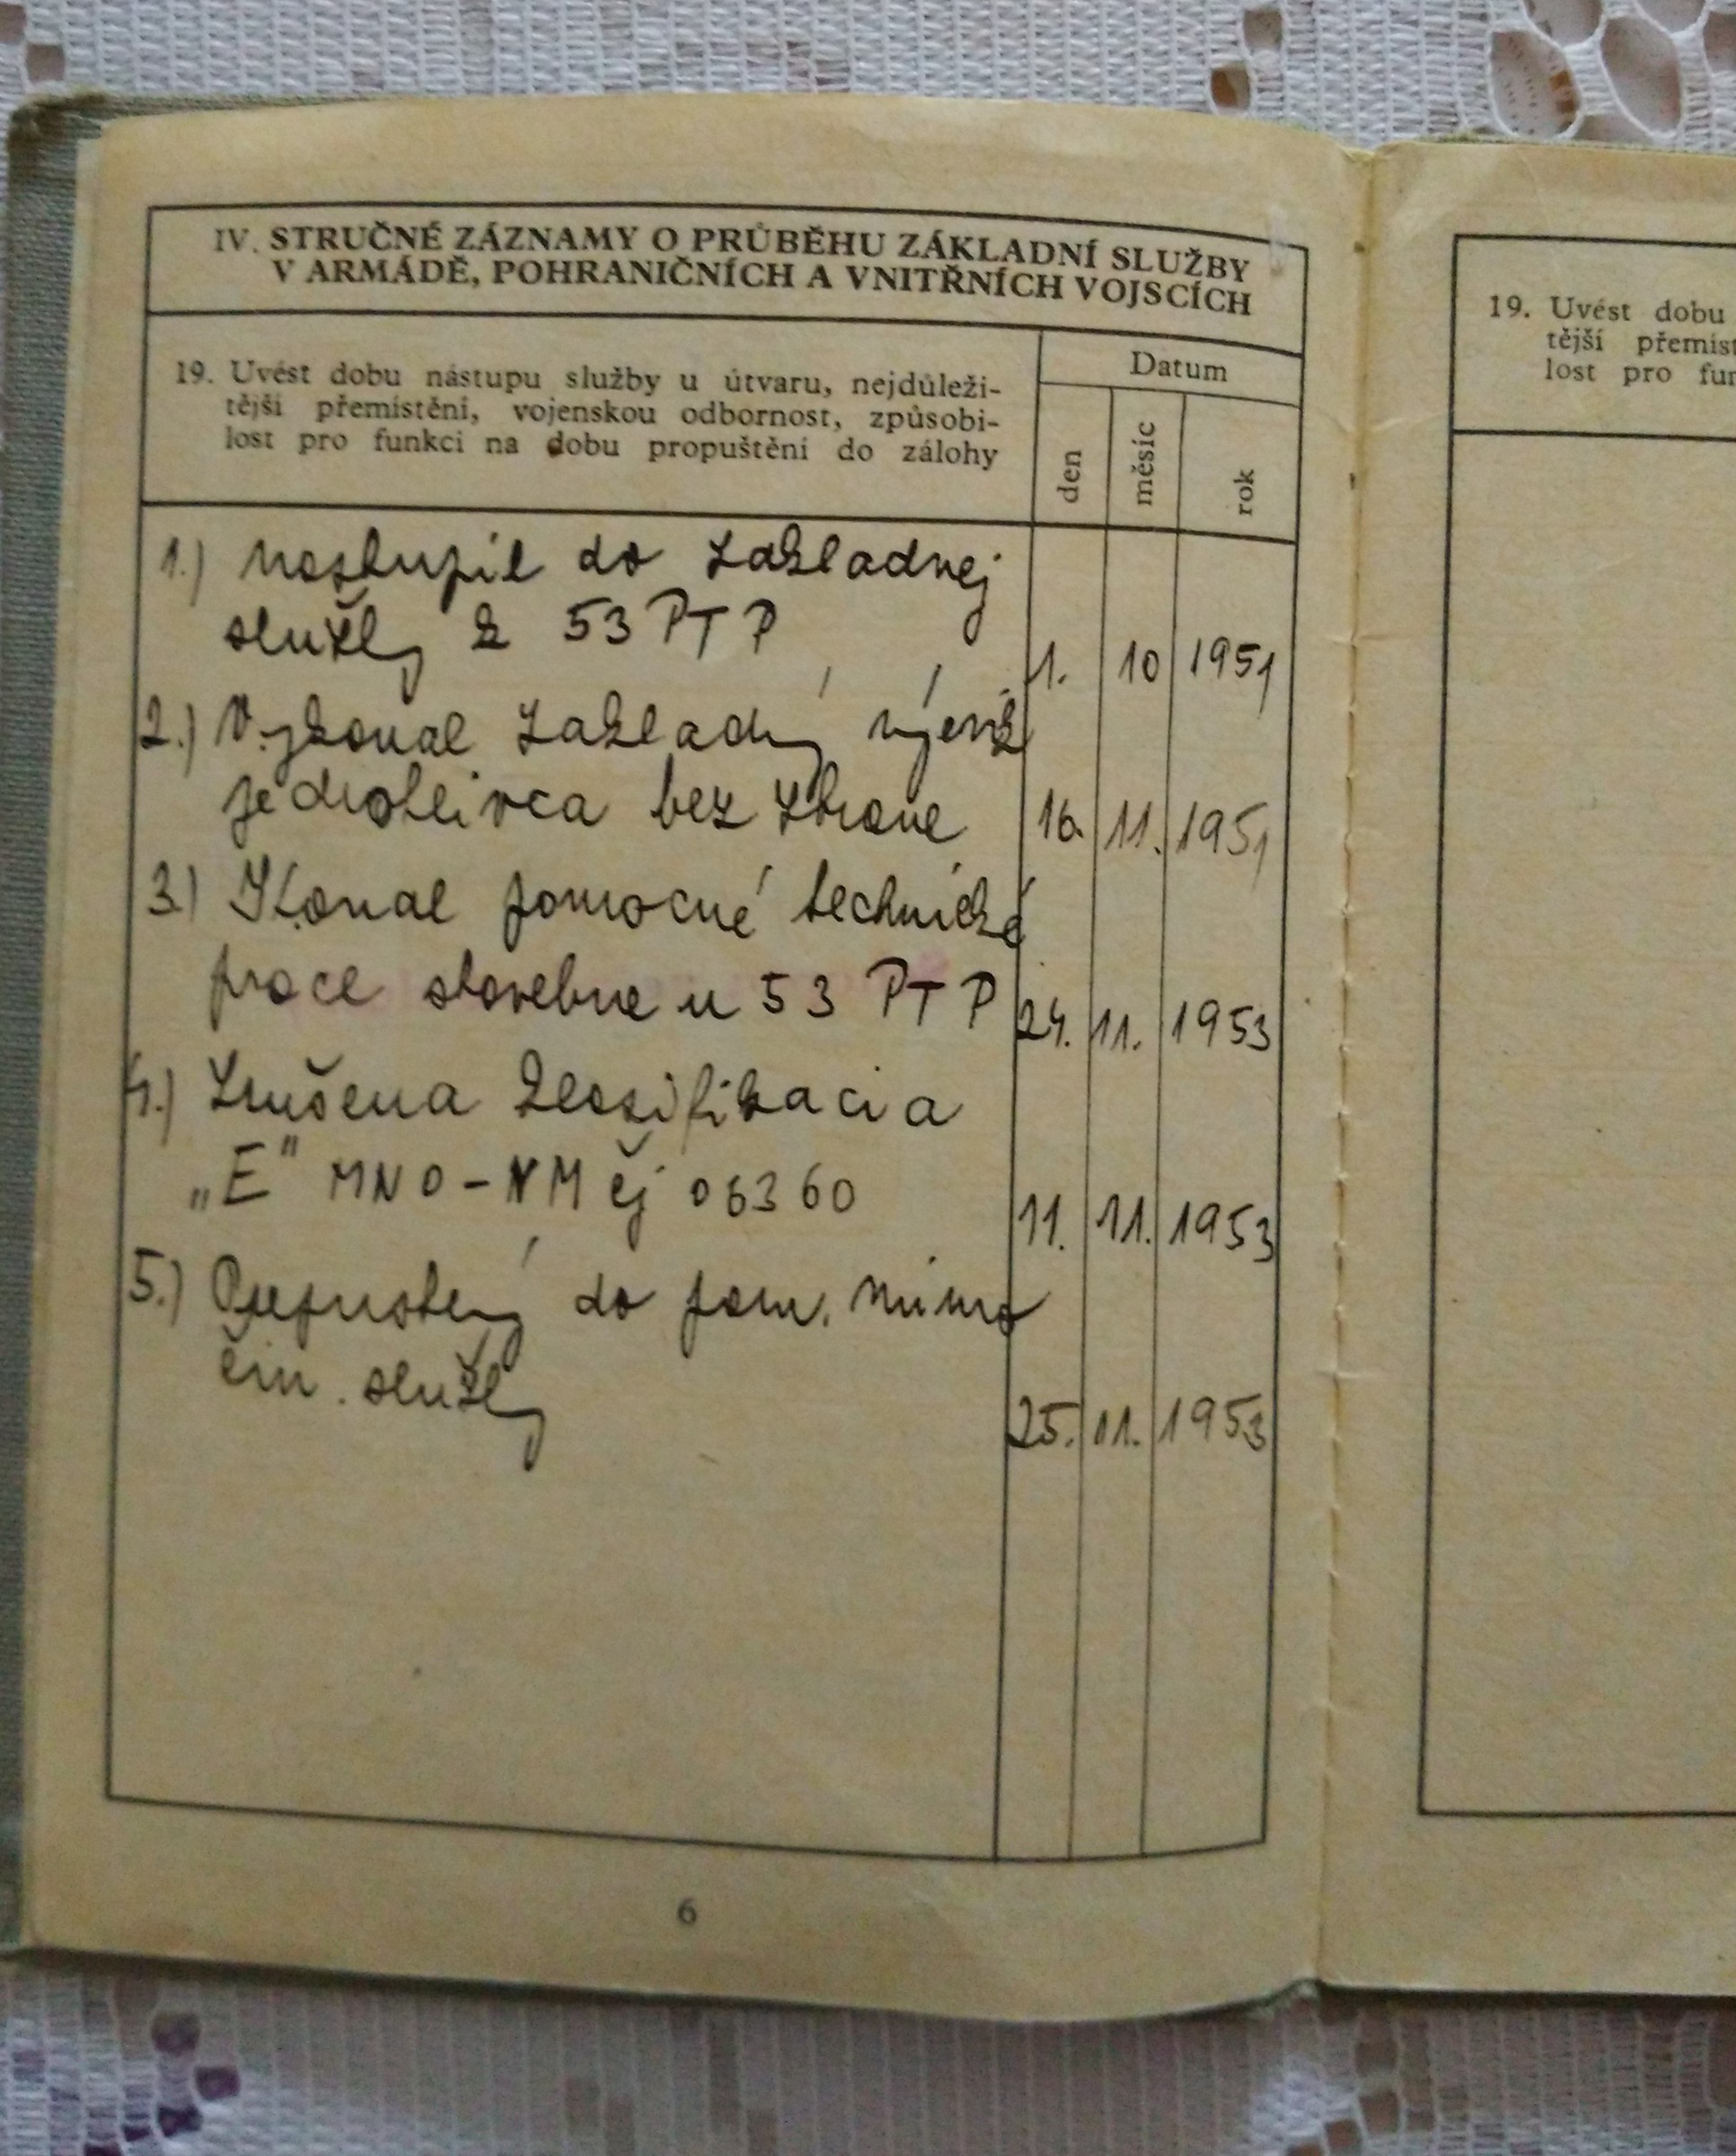 IV. STRUČNÉ ZÁZNAMY O PRŮBĚHU ZÁKLADNÍ SLUŽBY
V ARMÁDĚ, POHRANIČNÍCH A VNITŘNÍCH VOJSCÍCH
19. Uvést dobu nástupu služby u útvaru, nejdůleži-
tější přemístění, vojenskou odbornost, způsobi-
lost pro funkci na dobu propuštění do zálohy
Datum
den měsíc rok
1.) nastupil do základnej
služby k 53 PTP 1. 10 1951
2.) Vykonal základný výcvik
jednotlivca bez zbrane 16. 11. 1951
3.) Konal pomocné technické
prace stavebne u 53 PTP 24. 11. 1953
4.) Zrušena klasifikacia
„E" MNO-NM čj 06360 11. 11. 1953
5.) Prepustený do pom. mimo
čin. služby 25. 11. 1953
6
19. Uvést dobu
tější přemíst
lost pro fun